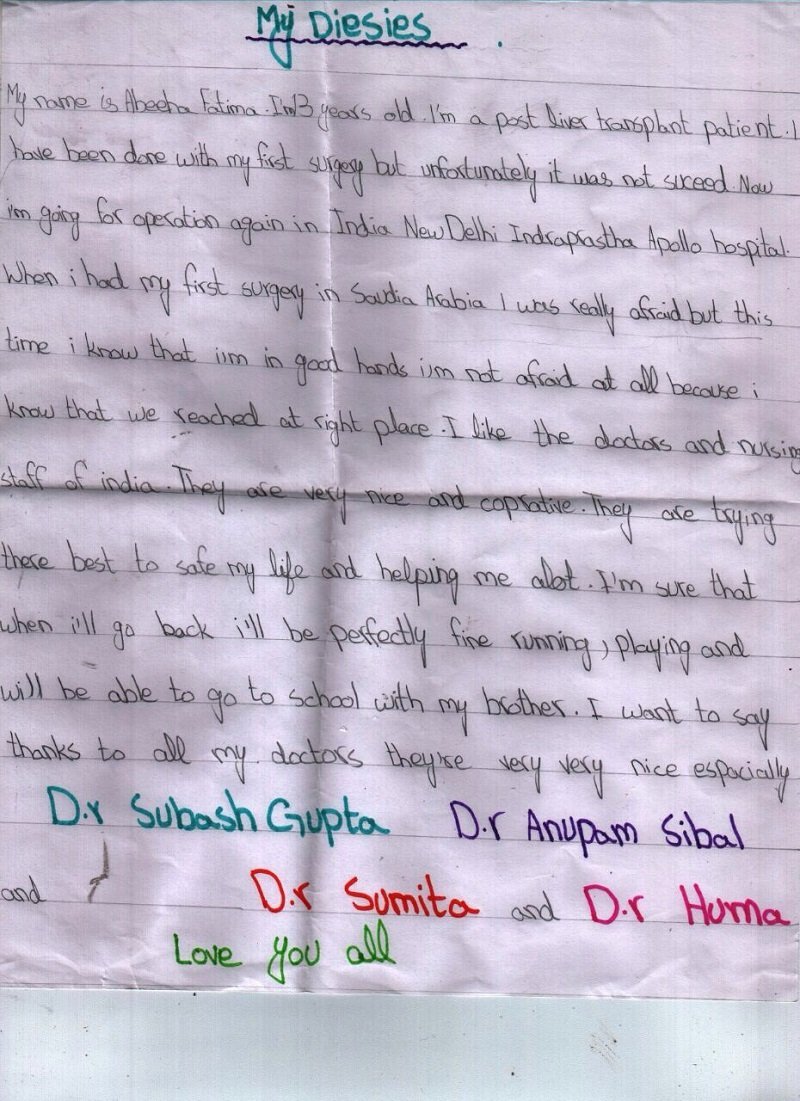 My Diesies
My name is Abeeha Fatima. I'm 13 years old. I'm a post liver transplant patient. I
have been done with my first surgery but unfortunately it was not suceed. Now
i'm going for operation again in India New Delhi Indraprastha Apollo hospital.
When i had my first surgery in Saudia Arabia I was really afraid but this
time i know that i'm in good hands i'm not afraid at all because i
know that we reached at right place. I like the doctors and nursing
staff of india. They are very nice and coprative. They are trying
there best to safe my life and helping me alot. I'm sure that
when i'll go back i'll be perfectly fine running, playing and
will be able to go to school with my brother. I want to say
thanks to all my doctors they're very very nice espacially
D.r Subash Gupta D.r Anupam Sibal
and D.r Sumita and D.r Huma
Love you all